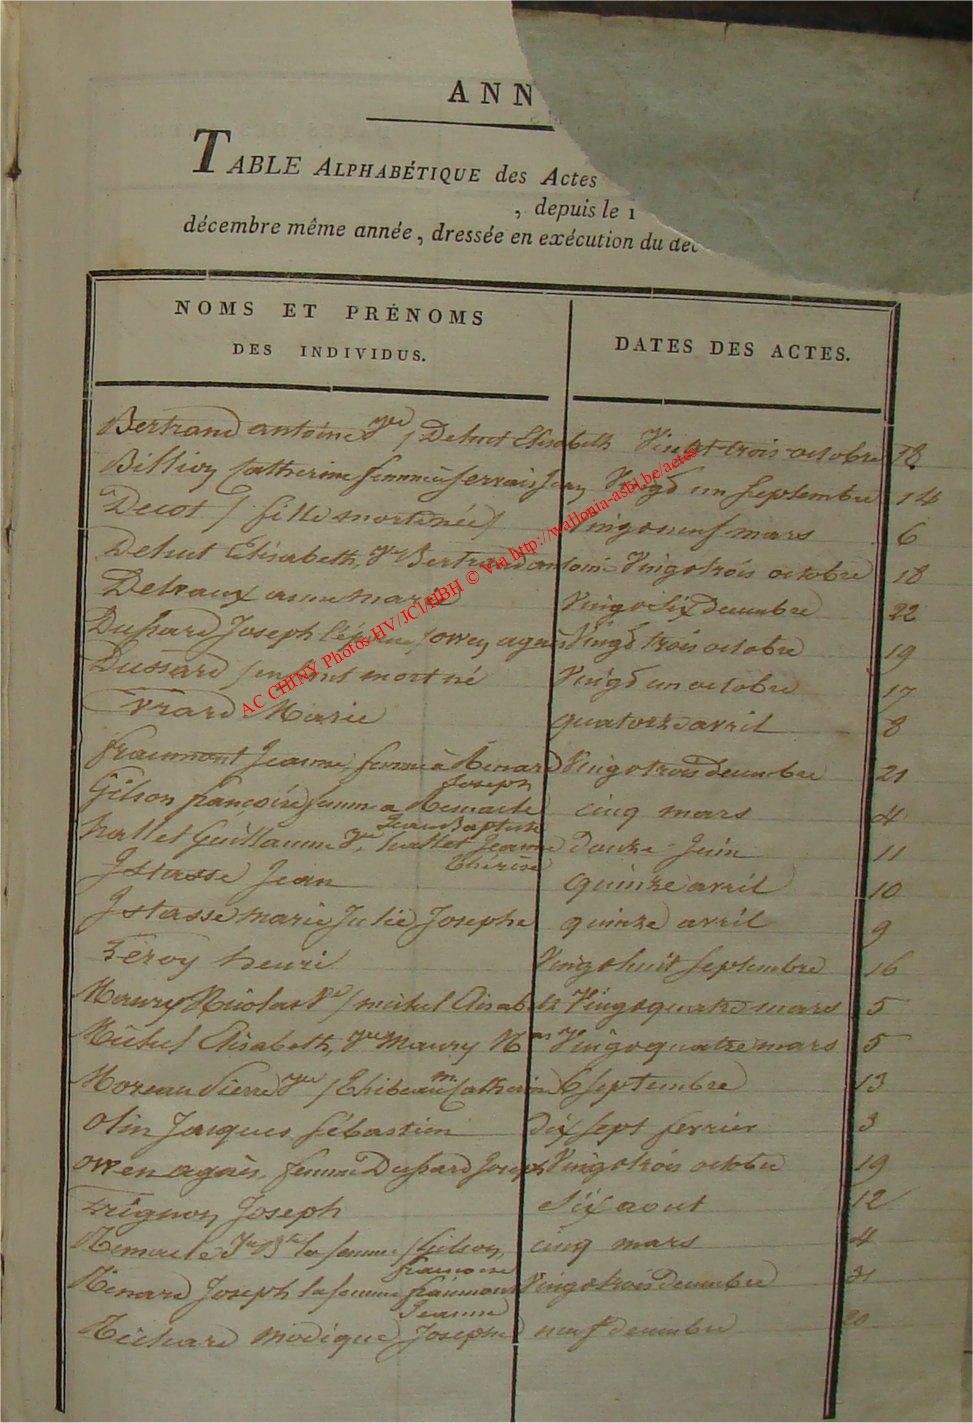 ANN
TABLE ALPHABÉTIQUE des Actes
, depuis le 1
décembre même année, dressée en exécution du déc
NOMS ET PRÉNOMS
DES INDIVIDUS.
DATES DES ACTES.
Bertrand antoine / Dehut Elisabeth Vingt trois octobre 18
Billion Catherine femme à Servais Jean Vingt un Septembre 14
Decot / fille mortenée / Vingt neuf mars 6
Dehut Elisabeth, Ve Bertrand antoine Vingt trois octobre 18
Delvaux anne marie Vingt Six Decembre 22
Dussard Joseph l'épouse / owen agnès Vingt trois octobre 19
Dussard / enfant mort né Vingt un octobre 17
Evrard Marie quatorze avril 8
fraumont Jeanne femme à Renard Vingt trois Decembre 21
Joseph
Gilson françoise femme a Remacle cinq mars 4
Jean Baptiste
hallet Guillaume Ve, hallet Jeanne Douze Juin 11
thérèse
Jstasse Jean quinze avril 10
Jstasse marie Julie Josephe quinze avril 9
Leroy henri Vingt huit Septembre 16
Maury Nicolas Ve / michel Elisabeth Vingt quatre mars 5
Michel Elisabeth, Ve Maury Nas Vingt quatre mars 5
Moreau Pierre / Catherine 6 Septembre 13
olin Jacques Sébastien dix Sept fevrier 3
owen agnès, femme Dussard Joseph Vingt trois octobre 19
Joseph Six aout 12
Remacle Jn Bte la femme / Gilson, cinq mars 4
francoise
Renard Joseph la femme fraumont Vingt trois Decembre 21
Jeanne
Richard modique Josephe neuf decembre 20
AC CHINY Photos HV/JCI/HBH © Via http://wallonia-asbl.be/actes